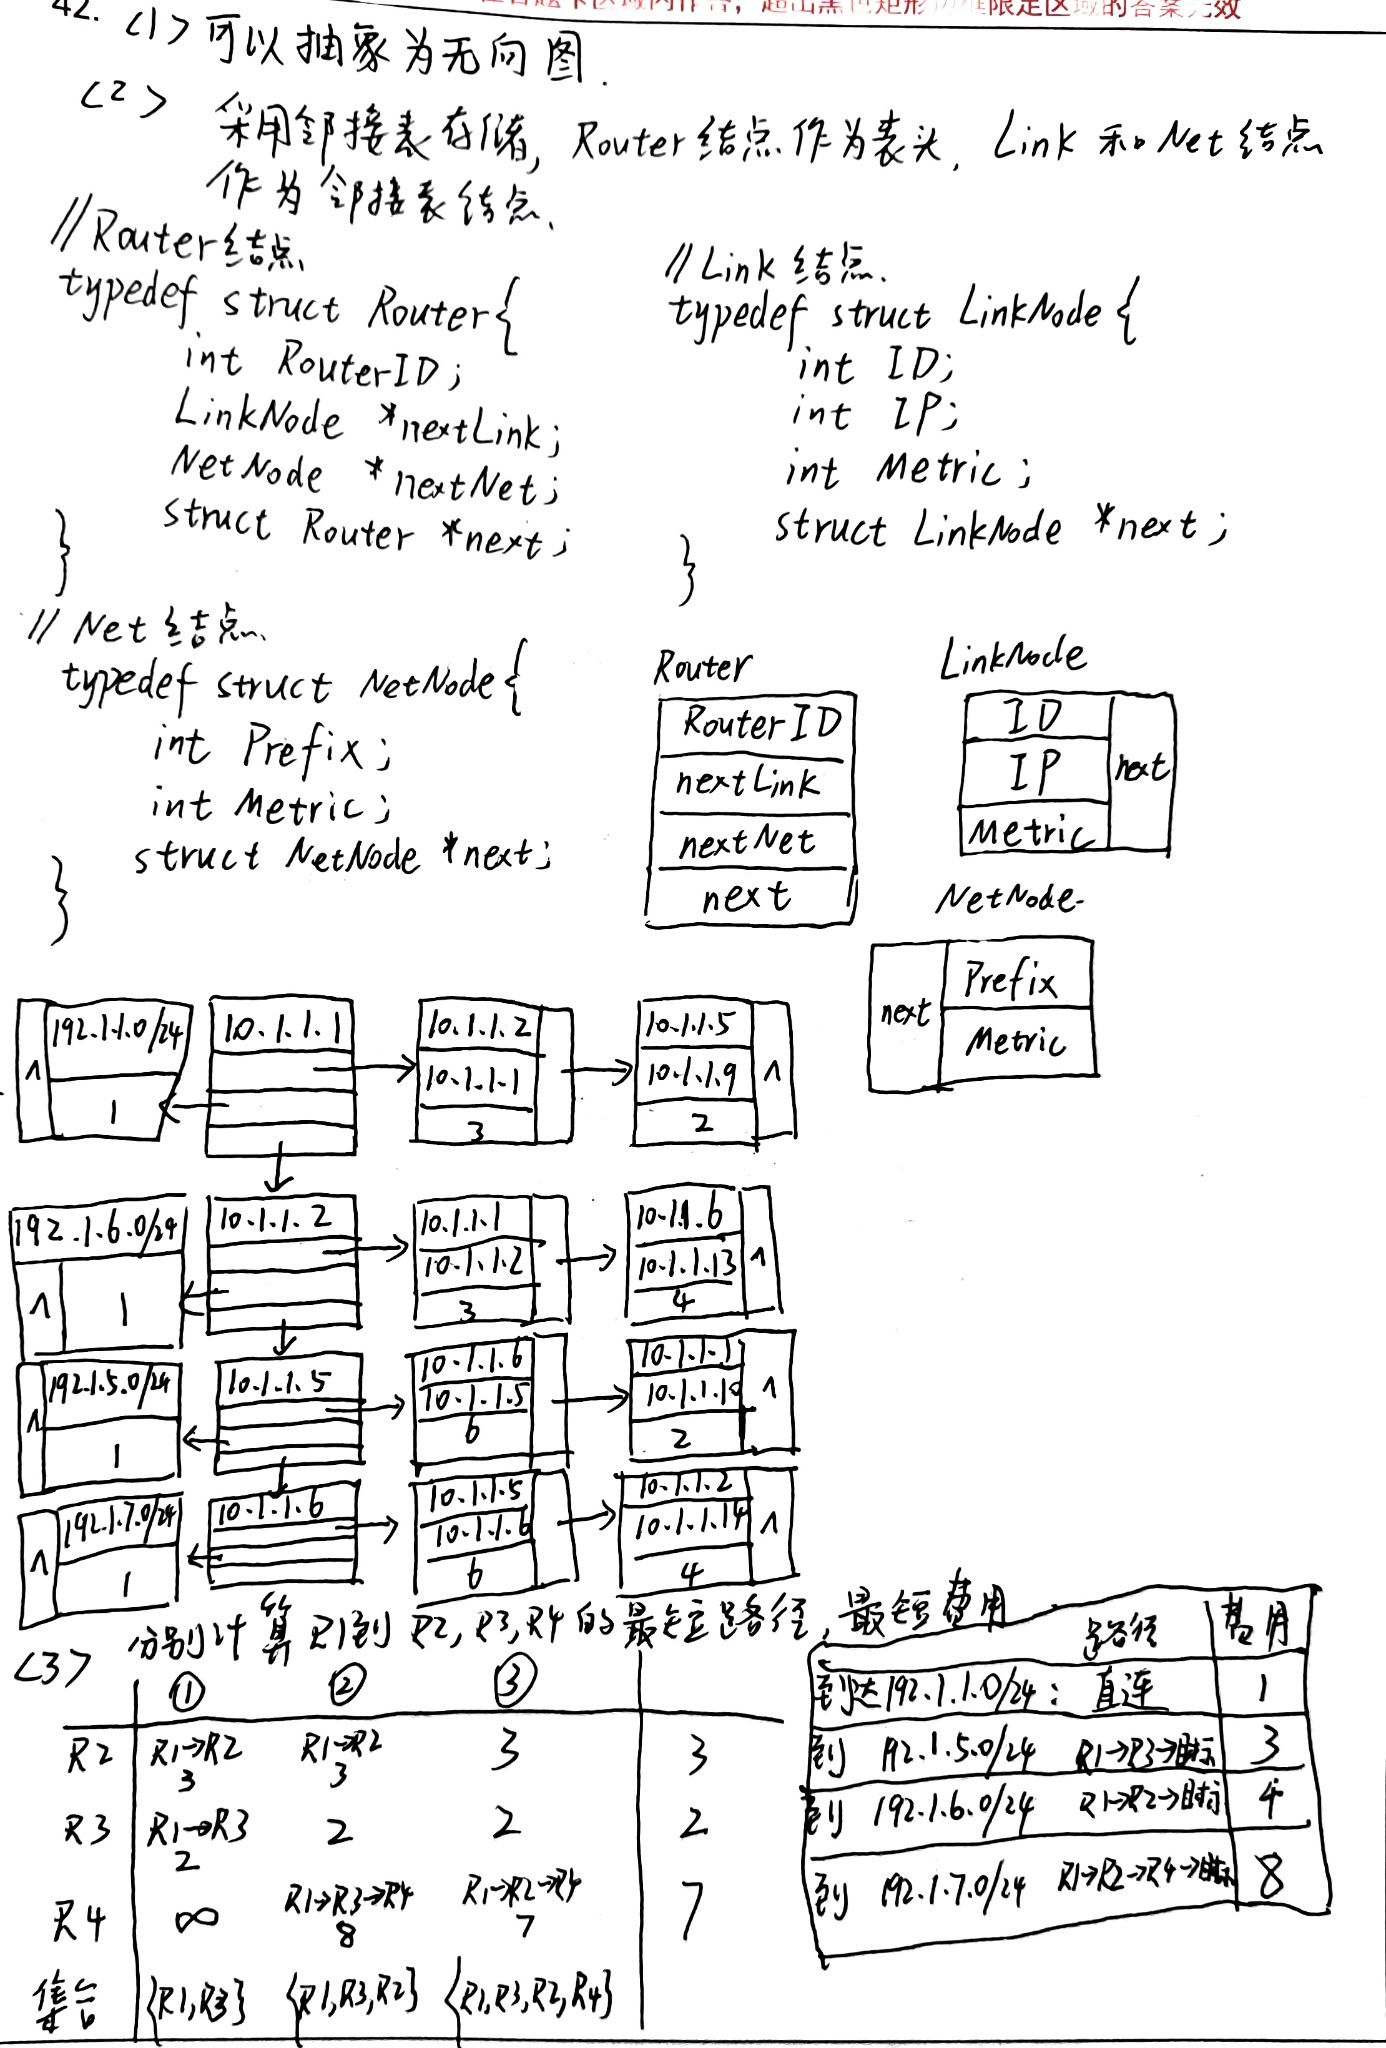 题卡区域内作答，超出黑色矩形边框限定区域的答案无效
42. <1> 可以抽象为无向图.
<2> 采用邻接表存储, Router结点作为表头, Link 和 Net 结点
作为邻接表结点.
//Router结点
typedef struct Router{
int RouterID;
LinkNode *nextLink;
NetNode *nextNet;
struct Router *next;
}
//Link 结点.
typedef struct LinkNode{
int ID;
int IP;
int Metric;
struct LinkNode *next;
}
// Net 结点.
typedef struct NetNode{
int Prefix;
int Metric;
struct NetNode *next;
}
Router
RouterID
nextLink
nextNet
next
LinkNode
ID
IP
Metric
next
NetNode
next
Prefix
Metric
∧ 192.1.1.0/24 1
10.1.1.1
10.1.1.2
10.1.1.1
3
10.1.1.5
10.1.1.9
2
∧
192.1.6.0/24
∧ 1
10.1.1.2
10.1.1.1
10.1.1.2
3
10.1.1.6
10.1.1.13
4
∧
∧ 192.1.5.0/24 1
10.1.1.5
10.1.1.6
10.1.1.5
6
10.1.1.1
10.1.1.10
2
∧
∧ 192.1.7.0/24 1
10.1.1.6
10.1.1.5
10.1.1.6
6
10.1.1.2
10.1.1.14
4
∧
<3> 分别计算R1到 R2, R3, R4 的最短路径, 最短费用
① ② ③
R2 R1→R2 3 R1→R2 3 3 3
R3 R1→R3 2 2 2 2
R4 ∞ R1→R3→R4 8 R1→R2→R4 7 7
集合 {R1,R3} {R1,R3,R2} {R1,R3,R2,R4}
路径 费用
到达192.1.1.0/24: 直连 1
到 192.1.5.0/24 R1→R3→目标 3
到 192.1.6.0/24 R1→R2→目标 4
到 192.1.7.0/24 R1→R2→R4→目标 8